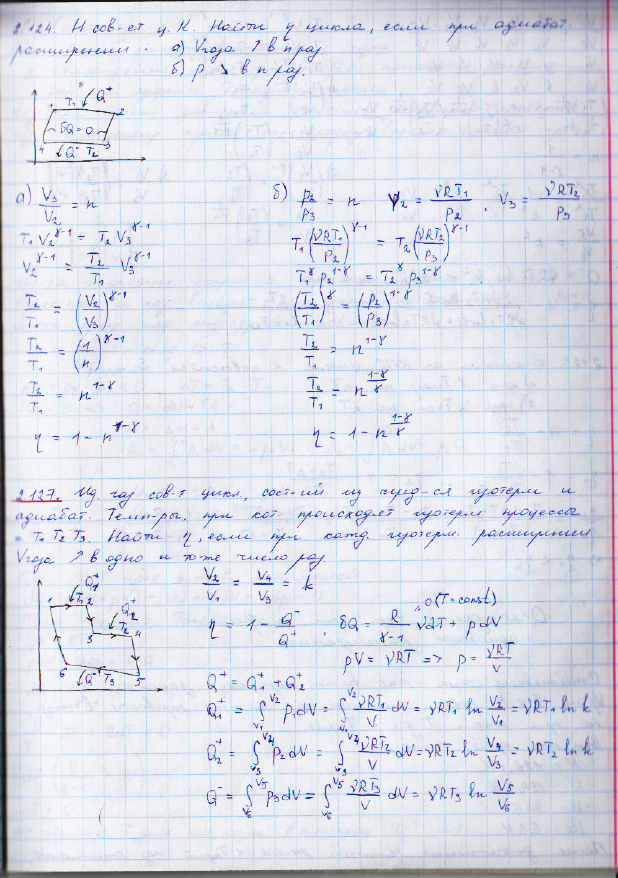 2.124. H сов-ет ц. К. Найти η цикла, если при адиабат.
расширении: а) Vгаза ↑ в n раз.
б) p ↓ в n раз.
T₁ Q⁺
1 2
δQ = 0
4 3
Q⁻ T₂
а) V₃/V₂ = n
T₁V₂^(γ-1) = T₂V₃^(γ-1)
V₂^(γ-1) = T₂/T₁ V₃^(γ-1)
T₂/T₁ = (V₂/V₃)^(γ-1)
T₂/T₁ = (1/n)^(γ-1)
T₂/T₁ = n^(1-γ)
η = 1 - n^(1-γ)
б) p₂/p₃ = n V₂ = νRT₁/p₂ , V₃ = νRT₂/p₃
T₁(νRT₁/p₂)^(γ-1) = T₂(νRT₂/p₃)^(γ-1)
T₁^γ p₂^(1-γ) = T₂^γ p₃^(1-γ)
(T₂/T₁)^γ = (p₂/p₃)^(1-γ)
T₂/T₁ = n^(1-γ)
T₂/T₁ = n^((1-γ)/γ)
η = 1 - n^((1-γ)/γ)
2.127. Ид. газ сов-т цикл, сост-ий из черед-ся изотерм и
адиабат. Темп-ры, при кот происходят изотерм процессы
T₁ T₂ T₃. Найти η, если при кажд. изотерм. расширении
Vгаза ↑ в одно и то же число раз.
Q₁⁺
1 T₁ 2
Q₂⁺
T₂
3 4
6 Q⁻ T₃ 5
V₂/V₁ = V₄/V₃ = k
η = 1 - Q⁻/Q⁺ , δQ = R/(γ-1) νdT + pdV
0 (T=const)
pV = νRT => p = νRT/V
Q⁺ = Q₁⁺ + Q₂⁺
Q₁⁺ = ∫_{V₁}^{V₂} p₁dV = ∫_{V₁}^{V₂} νRT₁/V dV = νRT₁ ln V₂/V₁ = νRT₁ ln k
Q₂⁺ = ∫_{V₃}^{V₄} p₂dV = ∫_{V₃}^{V₄} νRT₂/V dV = νRT₂ ln V₄/V₃ = νRT₂ ln k
Q⁻ = ∫_{V₆}^{V₅} p₃dV = ∫_{V₆}^{V₅} νRT₃/V dV = νRT₃ ln V₅/V₆